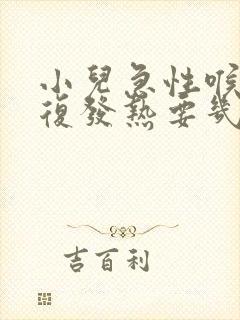 小兒急性喉
復發熱要幾
吉百利